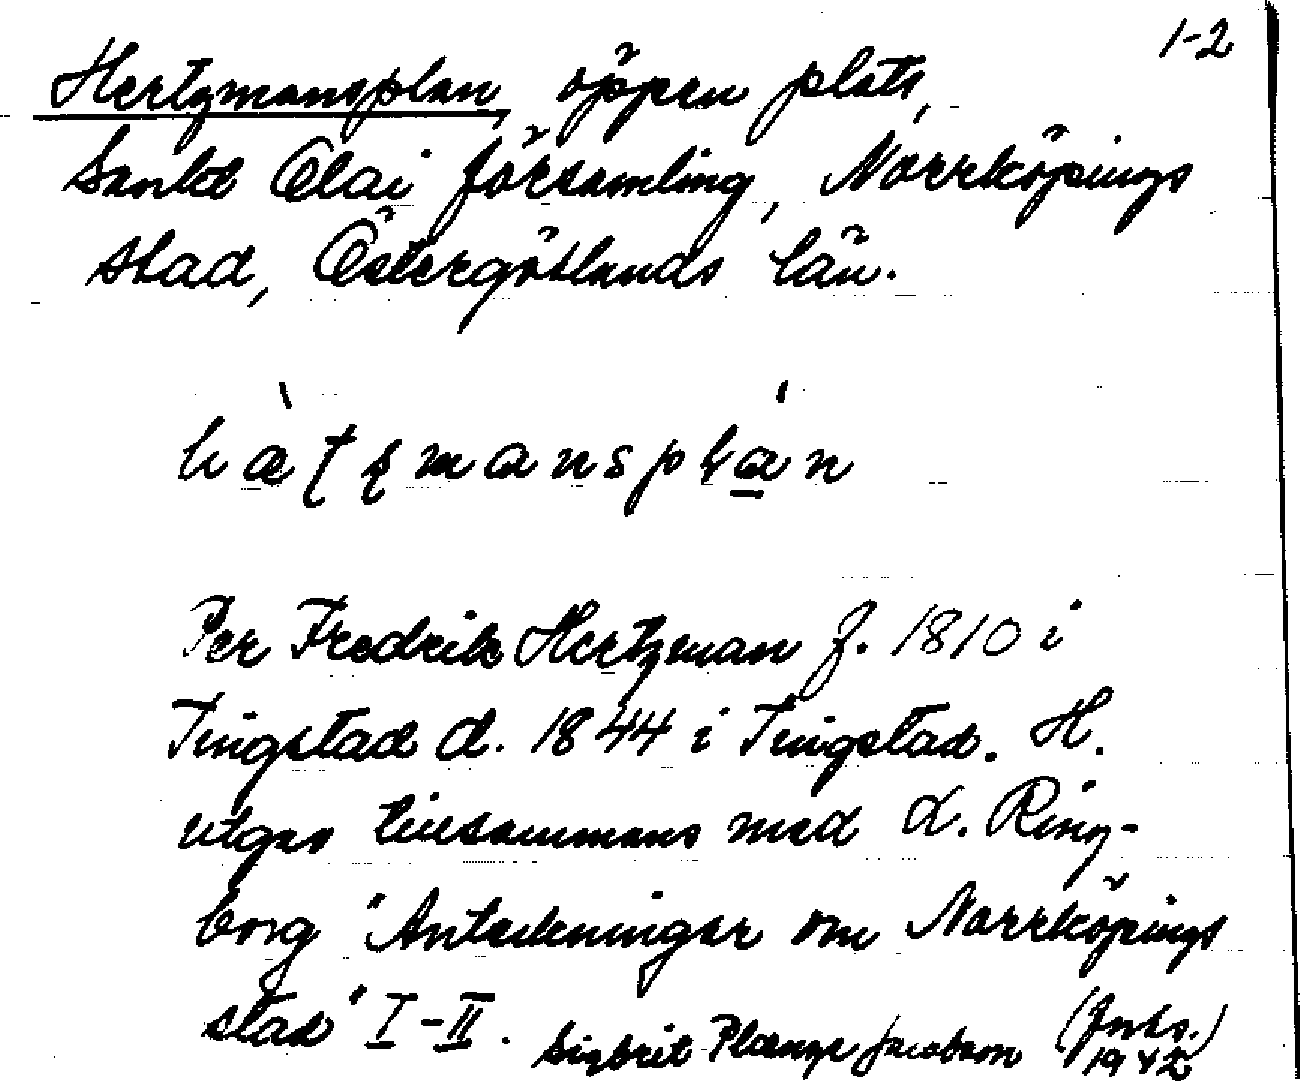 1-2
Hertzmansplan, öppen plats,
Sankt Olai församling, Norrköpings
stad, Östergötlands län.
Per Fredrik Hertzman f. 1810 i
Tingstad d. 1844 i Tingstad. H.
utgav tillsammans med d. Ring-
borg "Anteckningar om Norrköpings
stad" I-II. Sigbrit Plænge Jacobson
1942